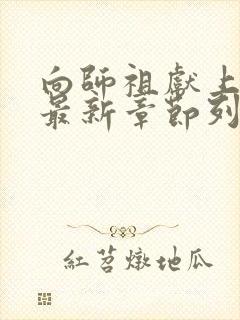 向師祖獻上
最新章節列
紅苕燉地瓜